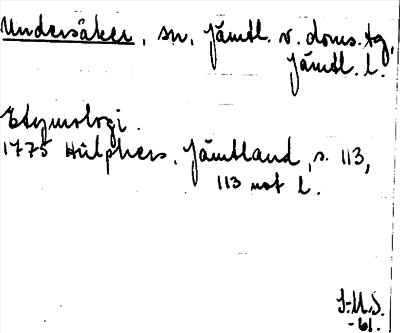 Undersåker, sn, Jämtl. v. doms. tg,
Jämtl. l.
Etymologi.
1775 Hülphers, Jämtland, s. 113,
113 not l.
J-M.S.
-61.